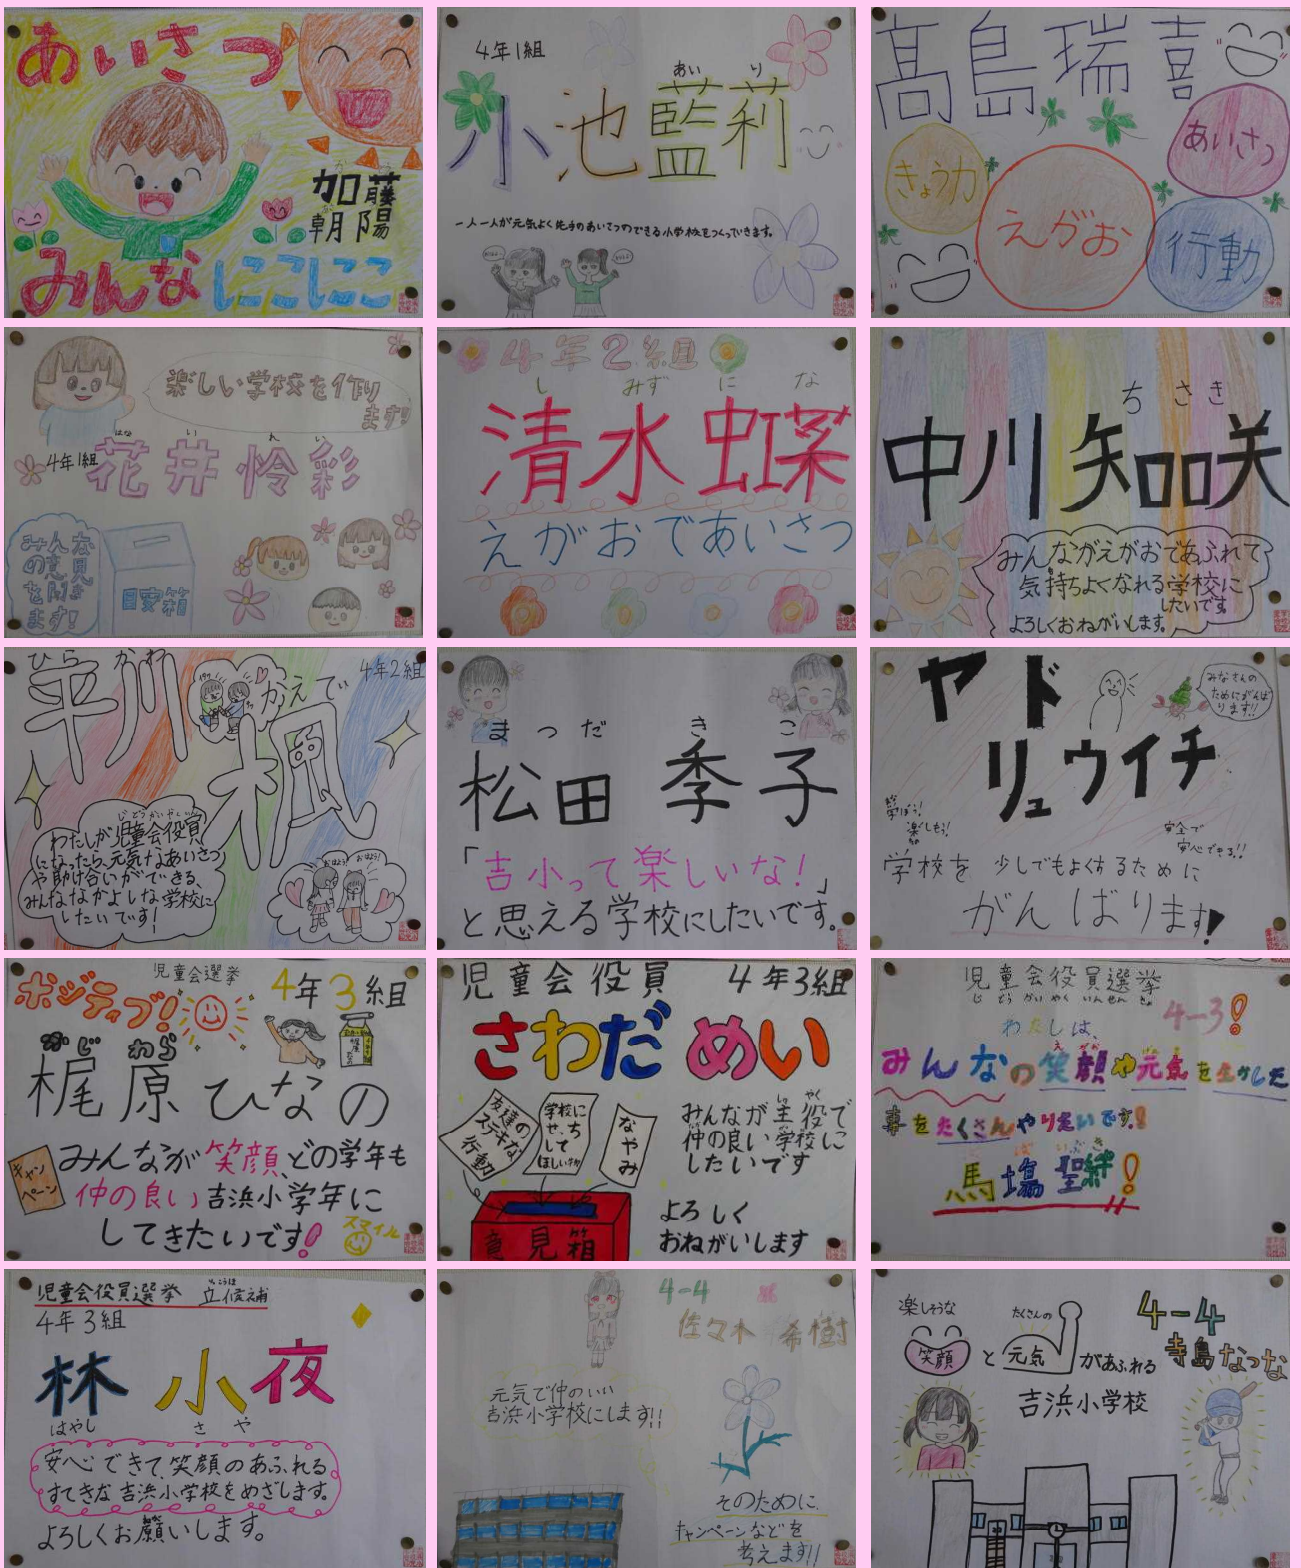 あいさつ
加藤
朝陽
みんなにこにこ
4年1組
あい り
小池藍莉
一人一人が元気よく先手のあいさつのできる小学校をつくっていきます。
髙島瑞喜
きょう力
あいさつ
えがお
行動
楽しい学校を作り
ます!
はな い れ い
4年1組
花井怜彩
みんな
の意見
をききます!
目安箱
4年2組
し みず に な
清水虹菜
えがおであいさつ
ち さ き
中川知咲
みんながえがおであふれて
気持ちよくなれる学校に
したいです
よろしくおねがいします。
ひら かわ かえで
4年2組
平川楓
わたしが児童会役員
になったら元気なあいさつ
や助け合いができる、
みんななかよしな学校に
したいです!
まつだ き こ
松田季子
「吉小って楽しいな!」
と思える学校にしたいです。
ヤド
リュウイチ
みなさんの
ためにがんば
ります!!
学ぼう!
楽しも!!
安全で
安心できる!!
学校を 少しでもよくするために
がんばります!
児童会選挙
ポジティブ!
4年3組
かじ わら
梶原ひなの
キャンペーン
みんなが笑顔、どの学年も
仲の良い吉浜小学年に
してきたいです!
スマイル
児童会役員 4年3組
さわだ めい
友達の
ステキな
行動
学校に
せっち
して
ほしい物
なやみ
意見箱
みんなが主役で
仲の良い学校に
したいです
よろしく
おねがいします
児童会役員選挙
じどうかいやくいんせんきょ
4-3!
わたしは、
みんなの笑顔や元気を生かした
事をたくさんやりたいです!
馬場聖絆!
児童会役員選挙 立候補
りっこうほ
4年3組
林 小夜
はやし さ や
安心できて、笑顔のあふれる
すてきな吉浜小学校をめざします。
よろしくお願いします。
4-4
佐々木 希樹
元気で仲のいい
吉浜小学校にします!!
そのために
キャンペーンなどを
考えます!!
4-4
寺島なつな
楽しそうな
笑顔
と
たくさんの
元気
があふれる
吉浜小学校